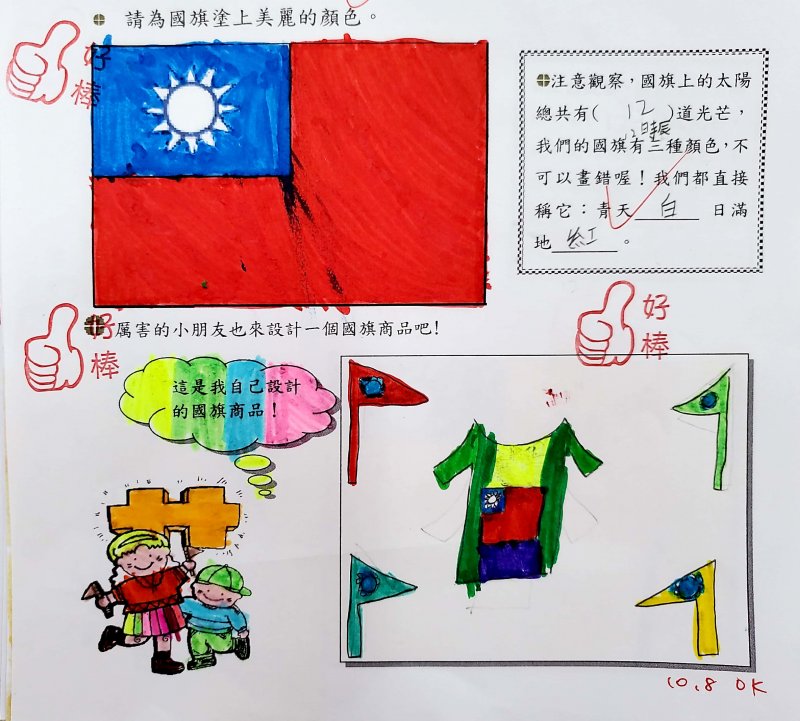 請為國旗塗上美麗的顏色。
好棒
注意觀察，國旗上的太陽
總共有( 12 )道光芒，
12時辰
我們的國旗有三種顏色，不
可以畫錯喔！我們都直接
稱它：青天 白 日滿
地 紅 。
好棒
厲害的小朋友也來設計一個國旗商品吧！
好棒
這是我自己設計
的國旗商品！
10.8 OK